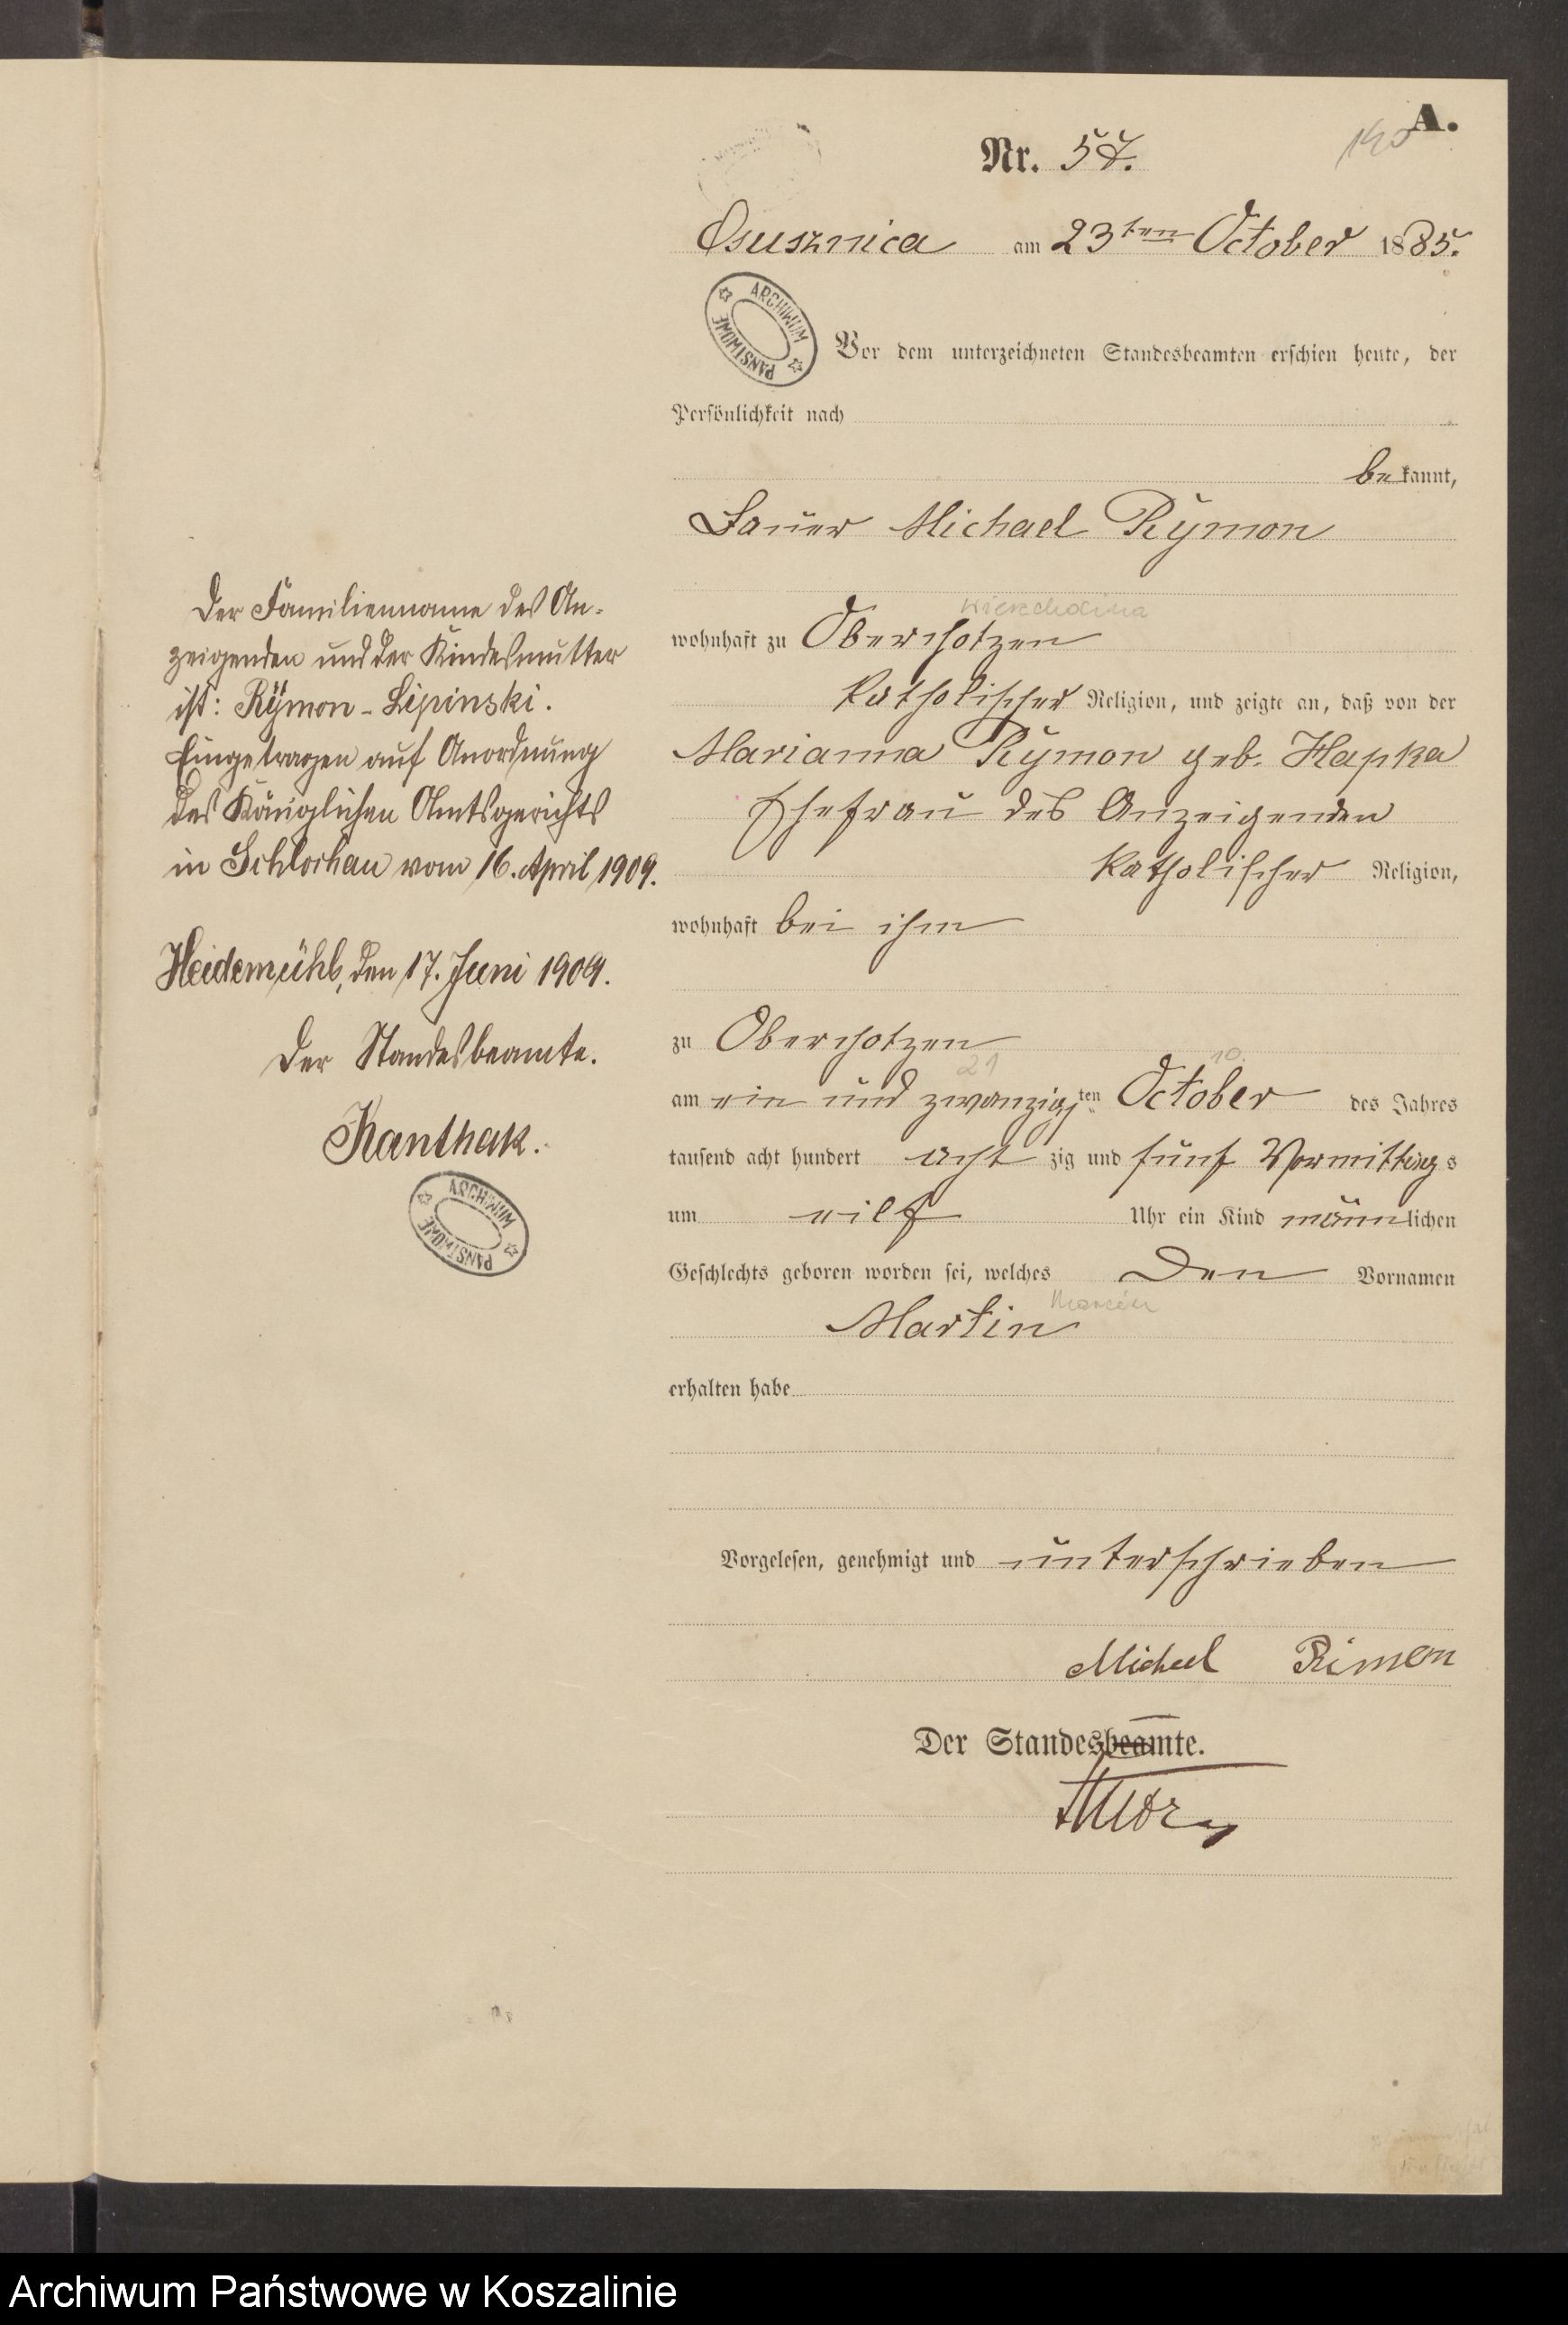 A.
140
Nr. 57.
Osusznica am 23ten October 1885.
ARCHIWUM PAŃSTWOWE
Vor dem unterzeichneten Standesbeamten erschien heute, der
Persönlichkeit nach
bekannt,
Bauer Michael Rÿmon
wierzchocina
wohnhaft zu Oberschotzen
katholischer Religion, und zeigte an, daß von der
Marianna Rÿmon geb. Hapka
Ehefrau des Anzeigenden
katholischer Religion,
wohnhaft bei ihm
zu Oberschotzen
21 10.
am ein und zwanzigsten October des Jahres
tausend acht hundert achtzig und fünf Vormittags
um eilf Uhr ein Kind männlichen
Geschlechts geboren worden sei, welches den Vornamen
Marcin
Martin
erhalten habe
Vorgelesen, genehmigt und unterschrieben
Michael Rimon
Der Standesbeamte.
Der Familienname des An-
zeigenden und der Kindesmutter
ist: Rÿmon-Lipinski.
Eingetragen auf Anordnung
des Königlichen Amtsgerichts
in Schlochau vom 16. April 1909.
Heidemühl, den 17. Juni 1909.
Der Standesbeamte.
Kanthak.
ARCHIWUM PAŃSTWOWE
Archiwum Państwowe w Koszalinie